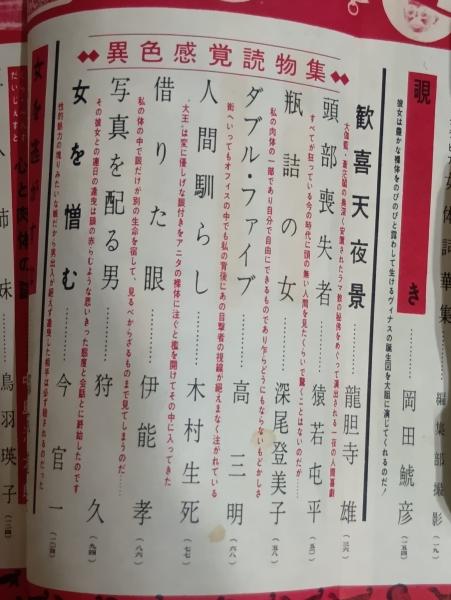 編集部撮影
(一九)
覗き
岡田鯱彦
(一五四)
彼女は豊かな裸体をのびのびと横わして生けるヴィナスの誕生図を大胆に演じてくれるのだ！
異色感覚読物集
歓喜天夜景
龍胆寺雄
(三六)
頭部喪失者
猿若屯平
(五〇)
すべてが狂っている今の時代に頭の無い人間を見たくらいで驚くことはないのだが……
瓶詰の女
深尾登美子
(五八)
私の肉体の一部であり自分で自由にできるものであり乍らどうにもならないもどかしさ
ダブル・ファイブ
高三明
(六八)
街へいってもオフィスの中でも私の背後にあの目撃者の視線が絶えまなく注がれている
人間馴らし
木村生死
(七七)
“大王”は変に優しげな眼付きをアニタの裸体に注ぐと檻を開けてその中に入ってきた
借りた眼
伊能孝
(八六)
私の体の中で眼だけが別の生命を宿して、見るべからざるものまで見てしまうのだ……
写真を配る男
狩久
(九四)
その彼女との連日の逢曳は顔の赤らむような思いきった態度と会話とに終始したのです
女を憎む
今官一
(一〇四)
性的魅力の塊りみたいな娘だから男出入が絶えず逢曳した相手は必ず魅されるのだった
女を逃がす
だいじぇすと
心と肉体の
姉妹
鳥羽瑛子
(一二四)